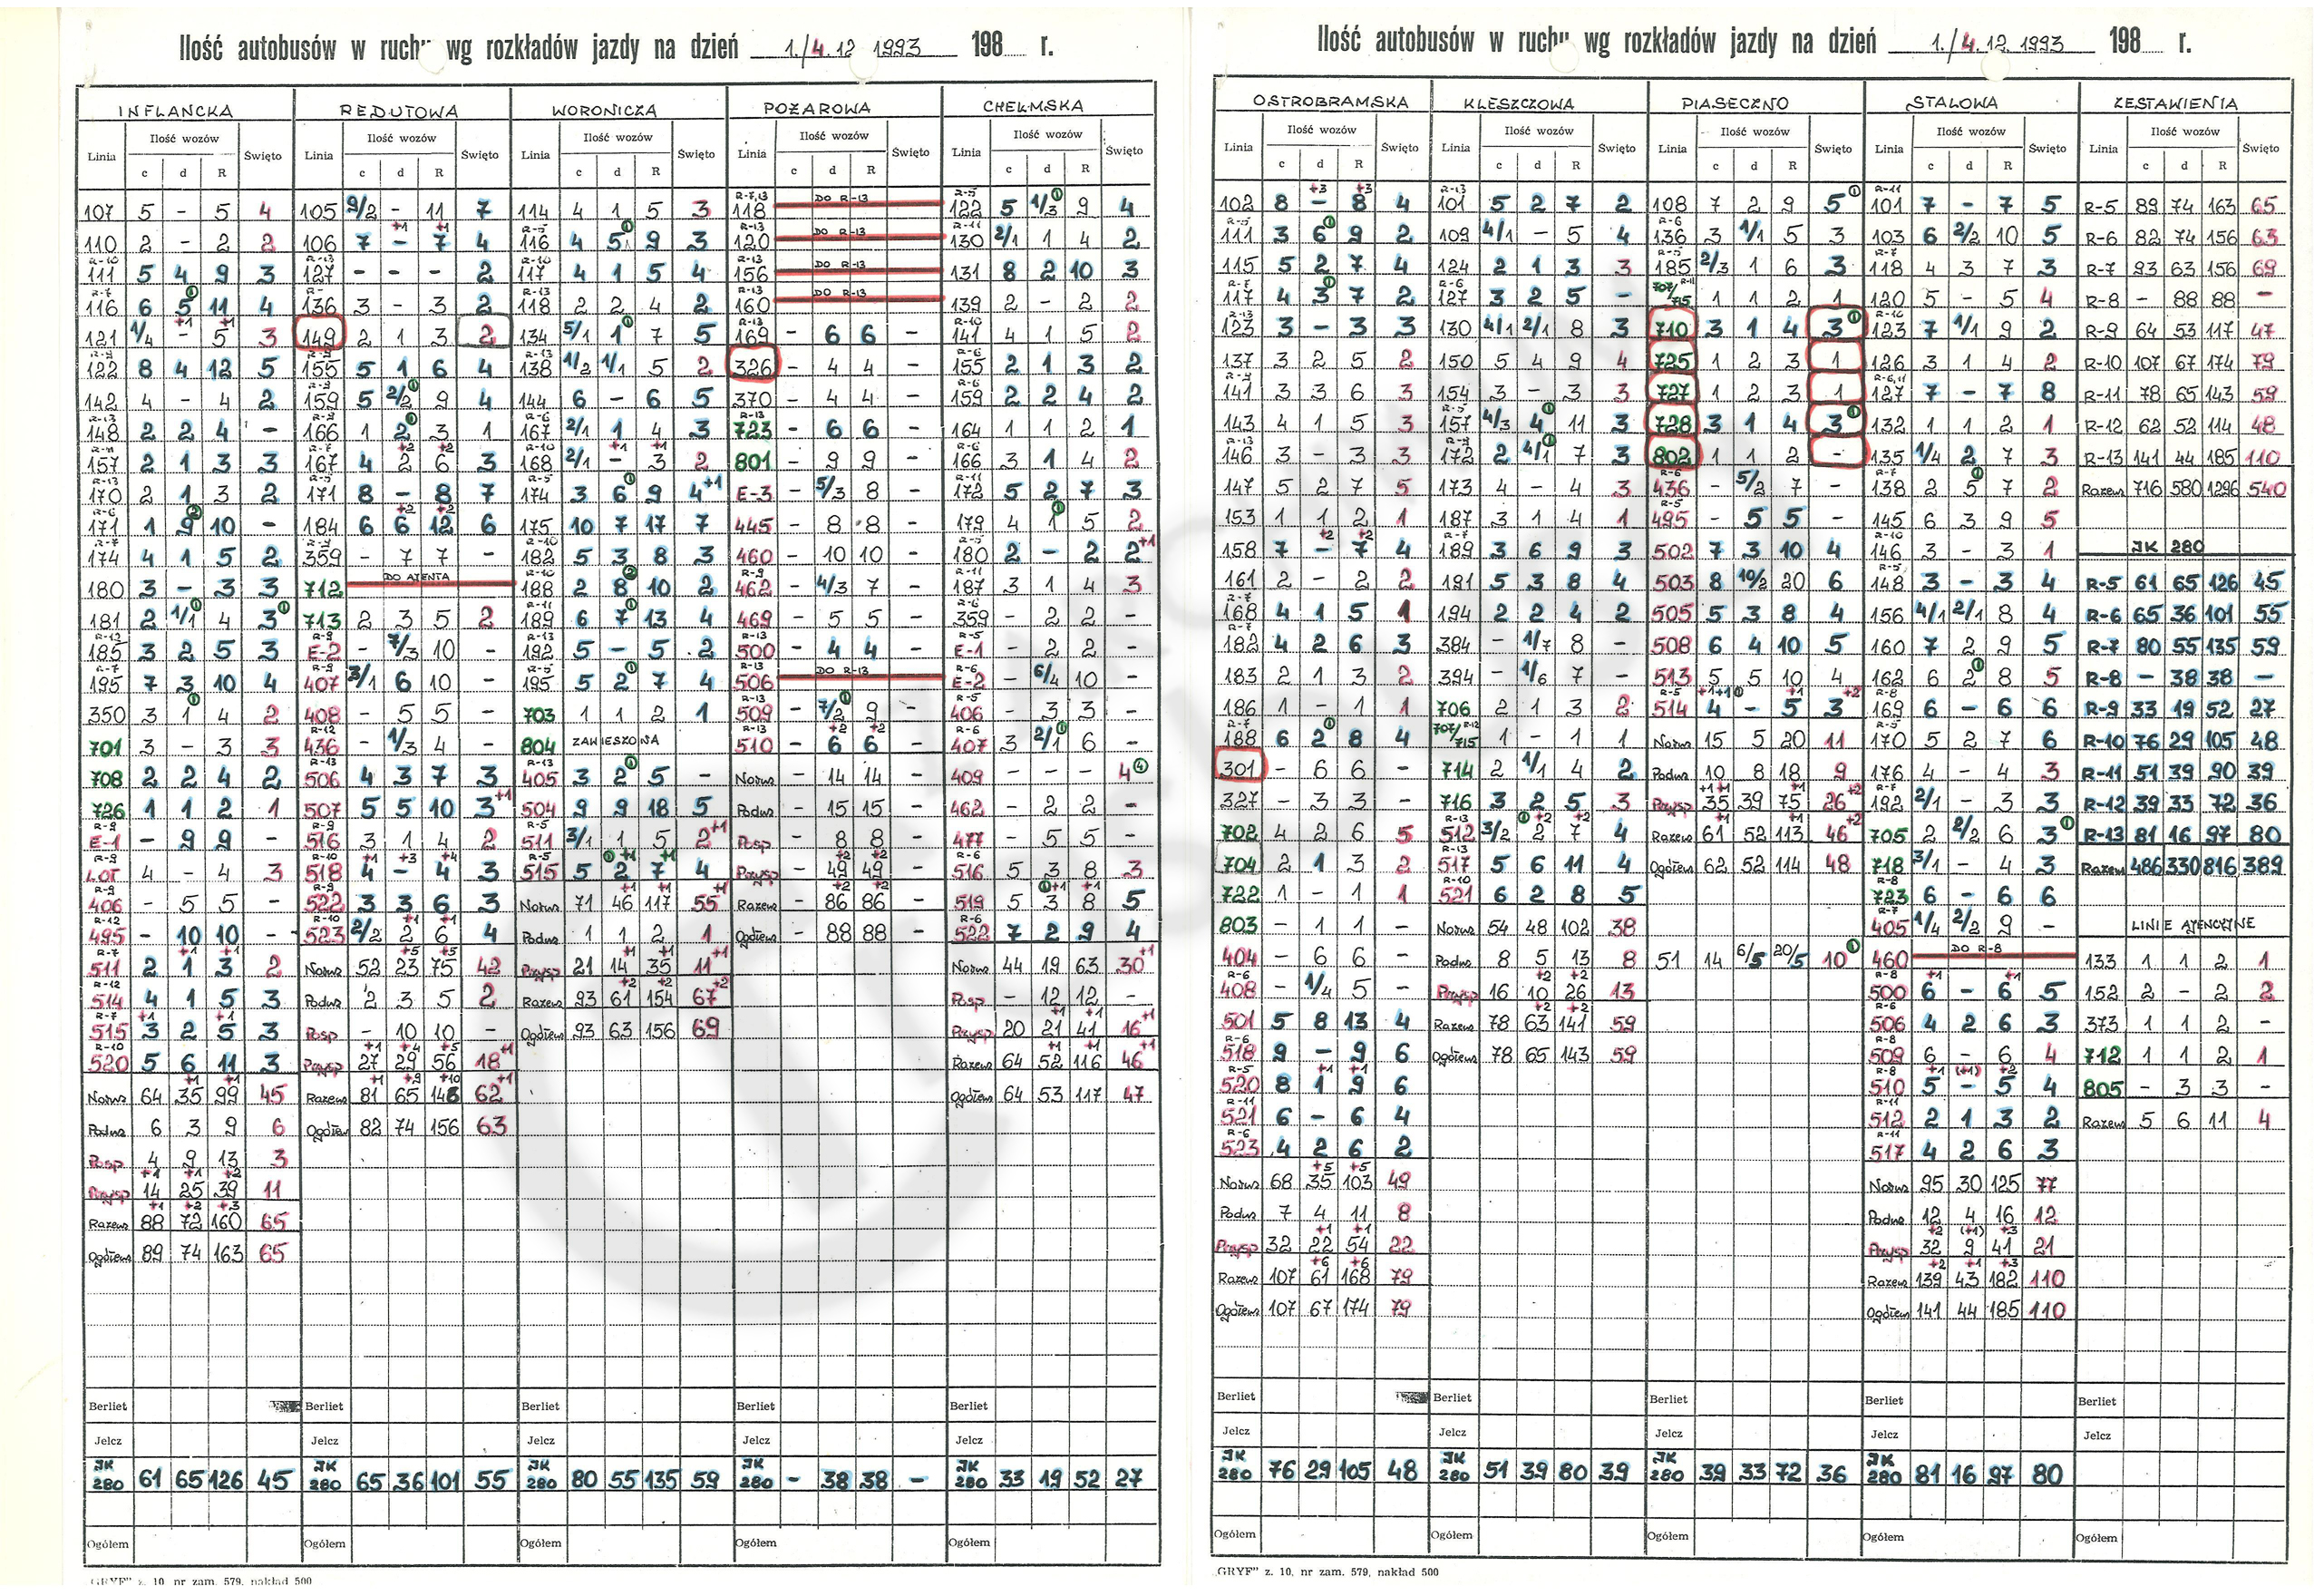 Ilość autobusów w ruchu wg rozkładów jazdy na dzień 1./4.12 1993 198 r.
INFLANCKA
Linia Ilość wozów Święto
c d R
107 5 - 5 4
110 2 - 2 2
R-10
111 5 4 9 3
R-7
116 6 5① 11 4
121 1/4 -+1 5+1 3
R-9
122 8 4 12 5
142 4 - 4 2
R-13
148 2 2 4 -
R-11
157 2 1 3 3
R-13
170 2 1 3 2
R-6
171 1 9② 10 -
R-7
174 4 1 5 2
180 3 - 3 3
181 2 1/1① 4 3①
R-12
185 3 2 5 3
R-7
195 7 3 10 4
350 3 1① 4 2
701 3 - 3 3
708 2 2 4 2
726 1 1 2 1
R-9
E-1 - 9 9 -
R-9
LOT 4 - 4 3
R-9
406 - 5 5 -
R-12
495 - 10 10 -
R-7
511 2 1+1 3+1 2
R-12
514 4 1 5 3
R-7
515 3+1 2 5+1 3
R-10
520 5 6 11 3
Norm 64 35+1 99+1 45
Podm 6 3 9 6
Posp 4 9 13 3
Przysp 14+1 25+1 39+2 11
Razem 88+1 72+2 160+3 65
Ogółem 89 74 163 65
Berliet
Jelcz
JK 280 61 65 126 45
Ogółem
REDUTOWA
Linia Ilość wozów Święto
c d R
105 9/2 - 11 7
106 7 -+1 7+1 4
R-13
127 - - - 2
R-
136 3 - 3 2
149 2 1 3 2
R-9
155 5 1 6 4
R-9
159 5 2/2① 9 4
R-9
166 1 2① 3 1
R-7
167 4 2+2 6+2 3
R-5
171 8 - 8 7
184 6 6+2 12+2 6
R-9
359 - 7 7 -
712 DO AJENTA
713 2 3 5 2
R-9
E-2 - 7/3 10 -
R-9
407 3/1 6 10 -
408 - 5 5 -
R-12
436 - 1/3 4 -
R-13
506 4 3 7 3
507 5 5 10 3+1
R-9
516 3 1 4 2
R-10
518 4+1 -+3 4+4 3
R-9
522 3 3 6 3
R-10
523 2/2 2+1 6+1 4
Norm 52 23+5 75+5 42
Podm 2 3 5 2
Posp - 10 10 -
Przysp 27+1 29+4 56+5 18+1
Razem 81+1 65+9 146+10 62+1
Ogółem 82 74 156 63
Berliet
Jelcz
JK 280 65 36 101 55
Ogółem
WORONICZA
Linia Ilość wozów Święto
c d R
114 4 1 5 3
R-5
116 4 5① 9 3
R-10
117 4 1 5 4
R-13
118 2 2 4 2
134 5/1 1① 7 5
R-13
138 1/2 1/1 5 2
144 6 - 6 5
R-6
167 2/1 1 4 3
R-10
168 2/1 -+1 3+1 2
R-5
174 3 6① 9 4+1
175 10 7 17 7
R-10
182 5 3 8 3
R-10
188 2 8② 10 2
R-11
189 6 7① 13 4
R-13
192 5 - 5 2
R-5
195 5 2① 7 4
703 1 1 2 1
804 ZAWIESZONA
R-13
405 3 2① 5 -
504 9 9 18 5
R-5
511 3/1 1 5 2+1
R-5
515 5 2①+1 7+1 4
Norm 71 46+1 117+1 55+1
Podm 1 1 2 1
Przysp 21 14+1 35+1 11+1
Razem 93 61+2 154+2 67+2
Ogółem 93 63 156 69
Berliet
Jelcz
JK 280 80 55 135 59
Ogółem
POŻAROWA
Linia Ilość wozów Święto
c d R
R-7,13
118 DO R-13
R-13
120 DO R-13
R-13
156 DO R-13
R-13
160 DO R-13
R-13
169 - 6 6 -
326 - 4 4 -
370 - 4 4 -
R-13
723 - 6 6 -
801 - 9 9 -
E-3 - 5/3 8 -
445 - 8 8 -
460 - 10 10 -
R-9
462 - 4/3 7 -
469 - 5 5 -
R-13
500 - 4 4 -
R-13
506 DO R-13
R-13
509 - 7/2① 9 -
R-13
510 - 6+2 6+2 -
Norm - 14 14 -
Podm - 15 15 -
Posp - 8 8 -
Przysp - 49+2 49+2 -
Razem - 86+2 86+2 -
Ogółem - 88 88 -
Berliet
Jelcz
JK 280 - 38 38 -
Ogółem
CHEŁMSKA
Linia Ilość wozów Święto
c d R
R-5
122 5 1/3① 9 4
R-11
130 2/1 1 4 2
131 8 2 10 3
139 2 - 2 2
R-10
141 4 1 5 2
R-6
155 2 1 3 2
R-6
159 2 2 4 2
164 1 1 2 1
R-6
166 3 1 4 2
R-11
172 5 2 7 3
179 4 1① 5 2
R-5
180 2 - 2 2+1
R-11
187 3 1 4 3
R-6
359 - 2 2 -
R-5
E-1 - 2 2 -
R-6
E-2 - 6/4 10 -
R-5
406 - 3 3 -
R-6
407 3 2/1① 6 -
409 - - - 4④
462 - 2 2 -
477 - 5 5 -
R-6
516 5 3 8 3
519 5 3①+1 8+1 5
R-6
522 7 2 9 4
Norm 44 19 63 30+1
Posp - 12 12 -
Przysp 20 21+1 41+1 16+1
Razem 64 52+1 116+1 46+1
Ogółem 64 53 117 47
Berliet
Jelcz
JK 280 33 19 52 27
Ogółem
„GRYF” z. 10, nr zam. 579, nakład 500
Ilość autobusów w ruchu wg rozkładów jazdy na dzień 1./4.12.1993 198 r.
OSTROBRAMSKA
Linia Ilość wozów Święto
c d R
102 8 -+3 8+3 4
R-5
111 3 6① 9 2
115 5 2 7 4
R-7
117 4 3① 7 2
R-13
123 3 - 3 3
137 3 2 5 2
R-9
141 3 3 6 3
143 4 1 5 3
R-13
146 3 - 3 3
147 5 2 7 5
153 1 1 2 1
158 7 -+2 7+2 4
161 2 - 2 2
R-7
168 4 1 5 1
R-7
182 4 2 6 3
183 2 1 3 2
186 1 - 1 1
R-7
188 6 2① 8 4
301 - 6 6 -
327 - 3 3 -
702 4 2 6 5
704 2 1 3 2
722 1 - 1 1
803 - 1 1 -
404 - 6 6 -
R-6
408 - 1/4 5 -
501 5 8 13 4
R-6
518 9 - 9 6
R-5
520 8 1+1 9+1 6
R-11
521 6 - 6 4
R-6
523 4 2 6 2
Norm 68 35+5 103+5 49
Podm 7 4 11 8
Przysp 32 22+1 54+1 22
Razem 107 61+6 168+6 79
Ogółem 107 67 174 79
Berliet
Jelcz
JK 280 76 29 105 48
Ogółem
KLESZCZOWA
Linia Ilość wozów Święto
c d R
R-13
101 5 2 7 2
109 4/1 - 5 4
124 2 1 3 3
R-6
127 3 2 5 -
130 4/1 2/1 8 3
150 5 4 9 4
154 3 - 3 3
R-5
157 4/3 4① 11 3
R-9
172 2 4/1① 7 3
173 4 - 4 3
187 3 1 4 1
R-7
189 3 6 9 3
191 5 3 8 4
194 2 2 4 2
384 - 1/7 8 -
394 - 1/6 7 -
706 2 1 3 2
707/715 R-12 1 - 1 1
714 2 1/1 4 2
716 3 2 5 3
R-13
512 3/2 2①+2 7+2 4
R-13
517 5 6 11 4
R-10
521 6 2 8 5
Norm 54 48 102 38
Podm 8 5 13 8
Przysp 16 10+2 26+2 13
Razem 78 63+2 141+2 59
Ogółem 78 65 143 59
Berliet
Jelcz
JK 280 51 39 80 39
Ogółem
PIASECZNO
Linia Ilość wozów Święto
c d R
108 7 2 9 5①
R-6
136 3 1/1 5 3
R-5
185 2/3 1 6 3
707/715 R-11 1 1 2 1
710 3 1 4 3①
725 1 2 3 1
727 1 2 3 1
728 3 1 4 3①
802 1 1 2 -
R-6
436 - 5/2 7 -
R-5
495 - 5 5 -
502 7 3 10 4
503 8 10/2 20 6
505 5 3 8 4
508 6 4 10 5
513 5 5 10 4
R-5
514 4+1 -+1① 5+1 3+2
Norm 15 5 20 11
Podm 10 8 18 9
Przysp 35+1 39+1 75+1 26+2
Razem 61 52+1 113+1 46+2
Ogółem 62 52 114 48
51 14 6/5 20/5 10①
Berliet
Jelcz
JK 280 39 33 72 36
Ogółem
STALOWA
Linia Ilość wozów Święto
c d R
R-11
101 7 - 7 5
103 6 2/2 10 5
R-7
118 4 3 7 3
120 5 - 5 4
R-10
123 7 1/1 9 2
126 3 1 4 2
R-6,11
127 7 - 7 8
132 1 1 2 1
135 1/4 2 7 3
R-7
138 2 5① 7 2
145 6 3 9 5
R-10
146 3 - 3 1
R-5
148 3 - 3 4
156 4/1 2/1 8 4
160 7 2 9 5
162 6 2① 8 5
R-8
169 6 - 6 6
R-5
170 5 2 7 6
176 4 - 4 3
R-7
192 2/1 - 3 3
705 2 2/2 6 3①
718 3/1 - 4 3
R-8
723 6 - 6 6
R-7
405 1/4 2/2 9 -
460 DO R-8
R-8
500 6+1 - 6+1 5
R-6
506 4 2 6 3
R-8
509 6 - 6 4
R-8
510 5+1 -(+1) 5+2 4
R-11
512 2 1 3 2
R-11
517 4 2 6 3
Norm 95 30 125 77
Podm 12 4 16 12
Przysp 32+2 9(+1) 41+3 21
Razem 139+2 43+1 182+3 110
Ogółem 141 44 185 110
Berliet
Jelcz
JK 280 81 16 97 80
Ogółem
ZESTAWIENIA
Linia Ilość wozów Święto
c d R
R-5 89 74 163 65
R-6 82 74 156 63
R-7 93 63 156 69
R-8 - 88 88 -
R-9 64 53 117 47
R-10 107 67 174 79
R-11 78 65 143 59
R-12 62 52 114 48
R-13 141 44 185 110
Razem 716 580 1296 540
JK 280
R-5 61 65 126 45
R-6 65 36 101 55
R-7 80 55 135 59
R-8 - 38 38 -
R-9 33 19 52 27
R-10 76 29 105 48
R-11 51 39 90 39
R-12 39 33 72 36
R-13 81 16 97 80
Razem 486 330 816 389
LINIE AJENCYJNE
133 1 1 2 1
152 2 - 2 2
373 1 1 2 -
712 1 1 2 1
805 - 3 3 -
Razem 5 6 11 4
Berliet
Jelcz
Ogółem
„GRYF” z. 10, nr zam. 579, nakład 500